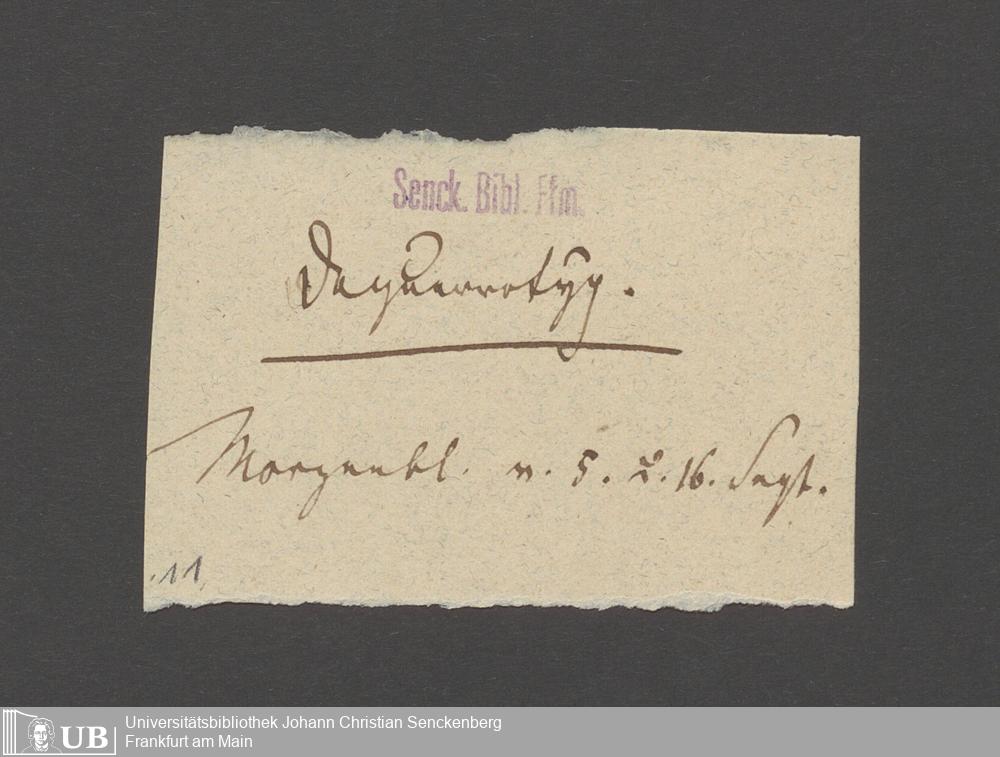 Senck. Bibl. Ffm.
Daguerrotyp.
Morgenbl. v. 5. & 16. Sept.
11
UB
Universitätsbibliothek Johann Christian Senckenberg
Frankfurt am Main